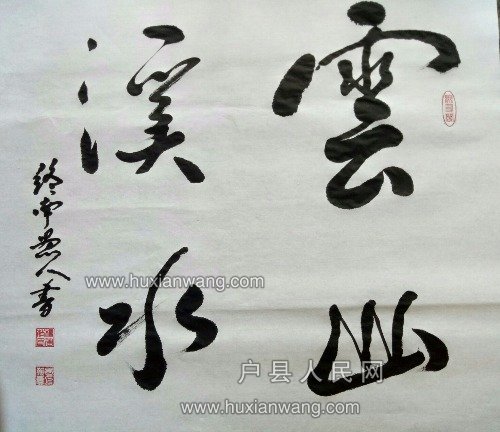 雲山
溪水
终南愚人書
www.huxianwang.com
www.huxianwang.com
户县人民网
www.huxianwang.com